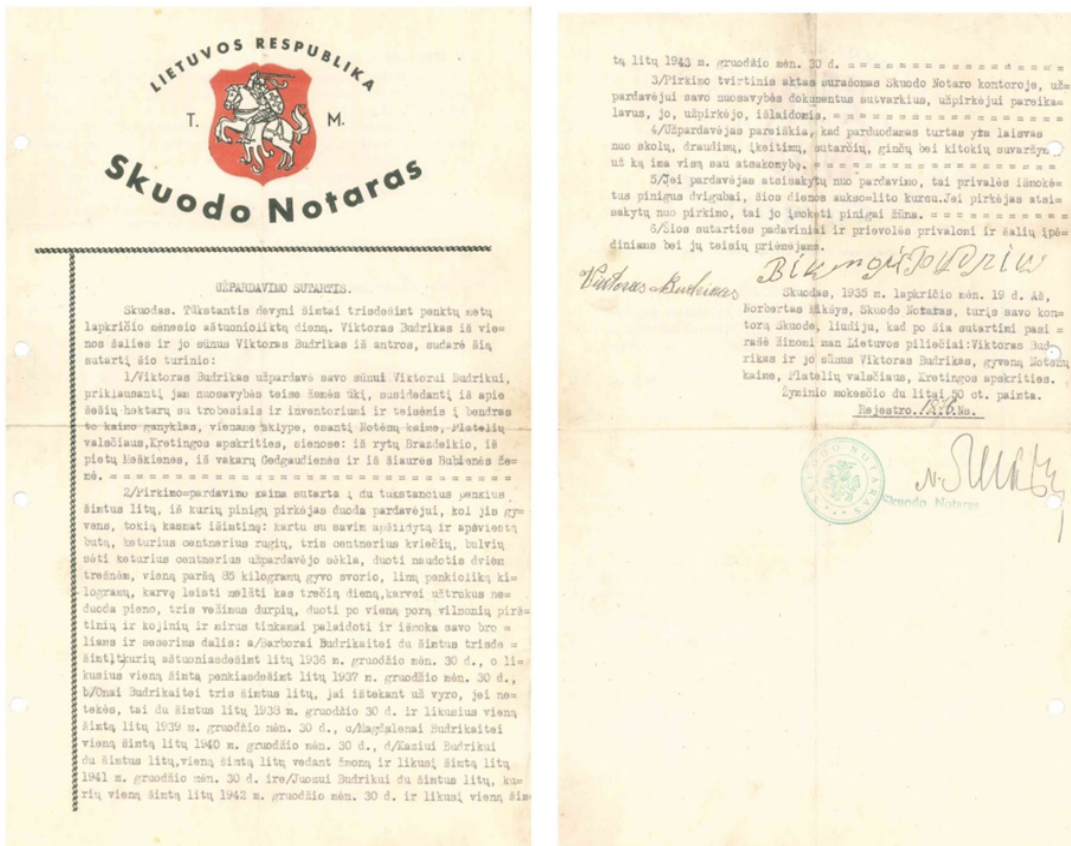 LIETUVOS RESPUBLIKA
T. M.
Skuodo Notaras
UŽPARDAVIMO SUTARTIS.
Skuodas. Tūkstantis devyni šimtai trisdešimt penktų metų
lapkričio mėnesio aštuonioliktą dieną. Viktoras Budrikas iš vie=
nos šalies ir jo sūnus Viktoras Budrikas iš antros, sudarė šią
sutartį šio turinio:
1/Viktoras Budrikas užpardavė savo sūnui Viktorui Budrikui,
priklausantį jam nuosavybės teise žemės ūkį, susidedantį iš apie
šešių hektarų su trobesiais ir inventorium ir teisėmis į bendras
to kaimo ganyklas, viename sklype, esantį Notėnų kaime, Platelių
valsčiaus,Kretingos apskrities, sienose: iš rytų Brazdeikio, iš
pietų Meškienės, iš vakarų Gedgaudienės ir iš šiaurės Bubienės že=
mė. = = = = = = = = = = = = = = = = = = = = = = = = = = = = = =
2/Pirkimo=pardavimo kaina sutarta į du tukstančius penkius
šimtus litų, iš kurių pinigų pirkėjas duoda pardavėjui, kol gy=
vens, tokią kasmat išimtinę: kartu su savim apšildytą ir apšviestą
butą, keturius centnerius rugių, tris centnerius kviečių, bulvių
sėti keturius centnerius užpardavėjo sėkla, duoti naudotis dviem
trešnėm, vieną paršą 85 kilogramų gyvo svorio, linų penkioliką ki=
logramų, karvę leisti melžti kas trečią dieną,karvei užtrukus ne=
duoda pieno, tris vežimus durpių, duoti po vieną porą vilnonių pirš=
tinių ir kojinių ir mirus tinkamai palaidoti ir išmoka savo bro =
liams ir seserims dalis: a/Barborai Budrikaitei du šimtus trisde =
šimt,kurių aštuoniasdešimt litų 1936 m. gruodžio mėn. 30 d., o li=
kusius vieną šimtą penkiasdešimt litų 1937 m. gruodžio mėn. 30 d.,
b/Onai Budrikaitei tris šimtus litų, jai ištekant už vyro, jei ne=
tekės, tai du šimtus litų 1938 m. gruodžio 30 d. ir likusius vieną
šimtą litų 1939 m. gruodžio mėn. 30 d., c/Magdalenai Budrikaitei
vieną šimtą litų 1940 m. gruodžio mėn. 30 d., d/Kaziui Budrikui
du šimtus litų,vieną šimtą litų vedant žmoną ir likusį šimtą litų
1941 m. gruodžio mėn. 30 d. ir e/Juozui Budrikui du šimtus litų, ku=
rių vieną šimtą litų 1942 m. gruodžio mėn. 30 d. ir likusį vieną šim=
tą litų 1943 m. gruodžio mėn. 30 d. = = = = = = = = = = = = = = = =
3/Pirkimo tvirtinis aktas surašomas Skuodo Notaro kontoroje, už=
pardavėjui savo nuosavybės dokumentus sutvarkius, užpirkėjui pareika=
lavus, jo, užpirkėjo, išlaidomis. = = = = = = = = = = = = = = = = =
4/Užpardavėjas pareiškia, kad parduodamas turtas yra laisvas
nuo skolų, draudimų, įkeitimų, sutarčių, ginčų bei kitokių
už ką ima visą sau atsakomybę. = = = = = = = = = = = = = = = = =
5/Jei pardavėjas atsisakytų nuo pardavimo, tai privalės išmokė=
tus pinigus dvigubai, šios dienos aukso=lito kursu.Jei pirkėjas atsi=
sakytų nuo pirkimo, tai jo įmokėti pinigai žūna. = = = = = = = = =
6/Šios sutarties padaviniai ir prievolės privalomi ir šalių įpė=
diniams bei jų teisių priėmėjams.
Viktoras Budrikas
Skuodas, 1935 m. lapkričio mėn. 19 d. Aš,
Norbertas Mikšys, Skuodo Notaras, turįs savo kon=
torą Skuode, liudiju, kad po šia sutartimi pasi =
rašė žinomi man Lietuvos piliečiai:Viktoras Bud=
rikas ir jo sūnus Viktoras Budrikas, gyveną Notėnų
kaime, Platelių valsčiaus, Kretingos apskrities.
Žyminio mokesčio du litai 50 ct. paimta.
Rejestro. Ns.
SKUODO NOTARAS
Skuodo Notaras